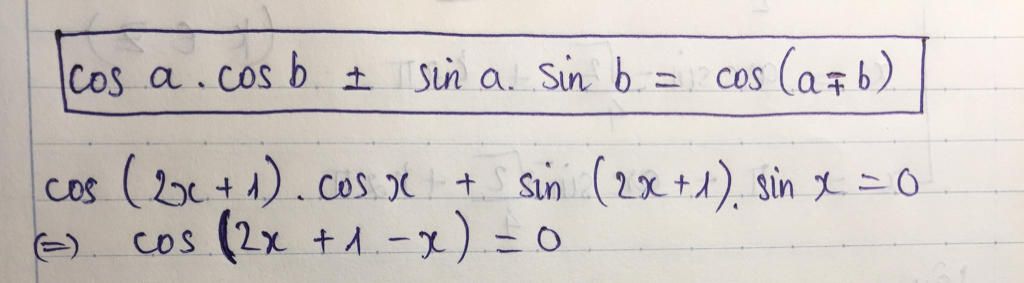 cos a . cos b ± sin a. sin b = cos (a ∓ b)
cos (2x + 1) . cos x + sin (2x + 1). sin x = 0
(=) cos (2x + 1 - x) = 0